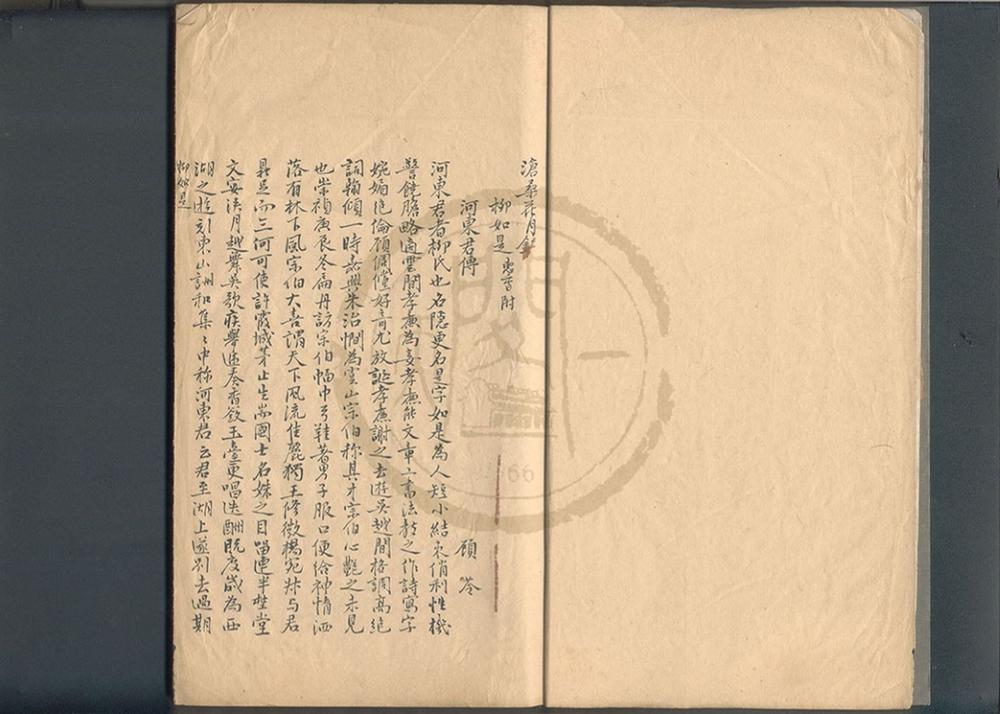 滄桑花月錄
柳如是 惠香附
河東君傳 顧苓
河東君者柳氏也名隱更名是字如是為人短小結束俏利性機
警饒膽略適雲間孝廉為妾孝廉能文章工書法教之作詩寫字
婉媚絕倫顧倜儻好奇尤放誕孝廉謝之去遊吳越間格調高絕
詞翰傾一時嘉興朱治憪為虞山宗伯称其才宗伯心艷之未見
也崇禎庚辰冬扁舟訪宗伯幅巾弓鞋著男子服口便給神情洒
落有林下風宗伯大喜謂天下風流佳麗獨王修微楊宛叔与君
鼎足而三何可使許霞城茅止生耑國士名姝之目留連半埜堂
文宴浹月越舞吳歌疾舉迭奏香奩玉臺更唱迭酬既度歲為西
湖之遊刻東山酬和集〻中称河東君云君至湖上遂別去過期
柳如是
聞
66